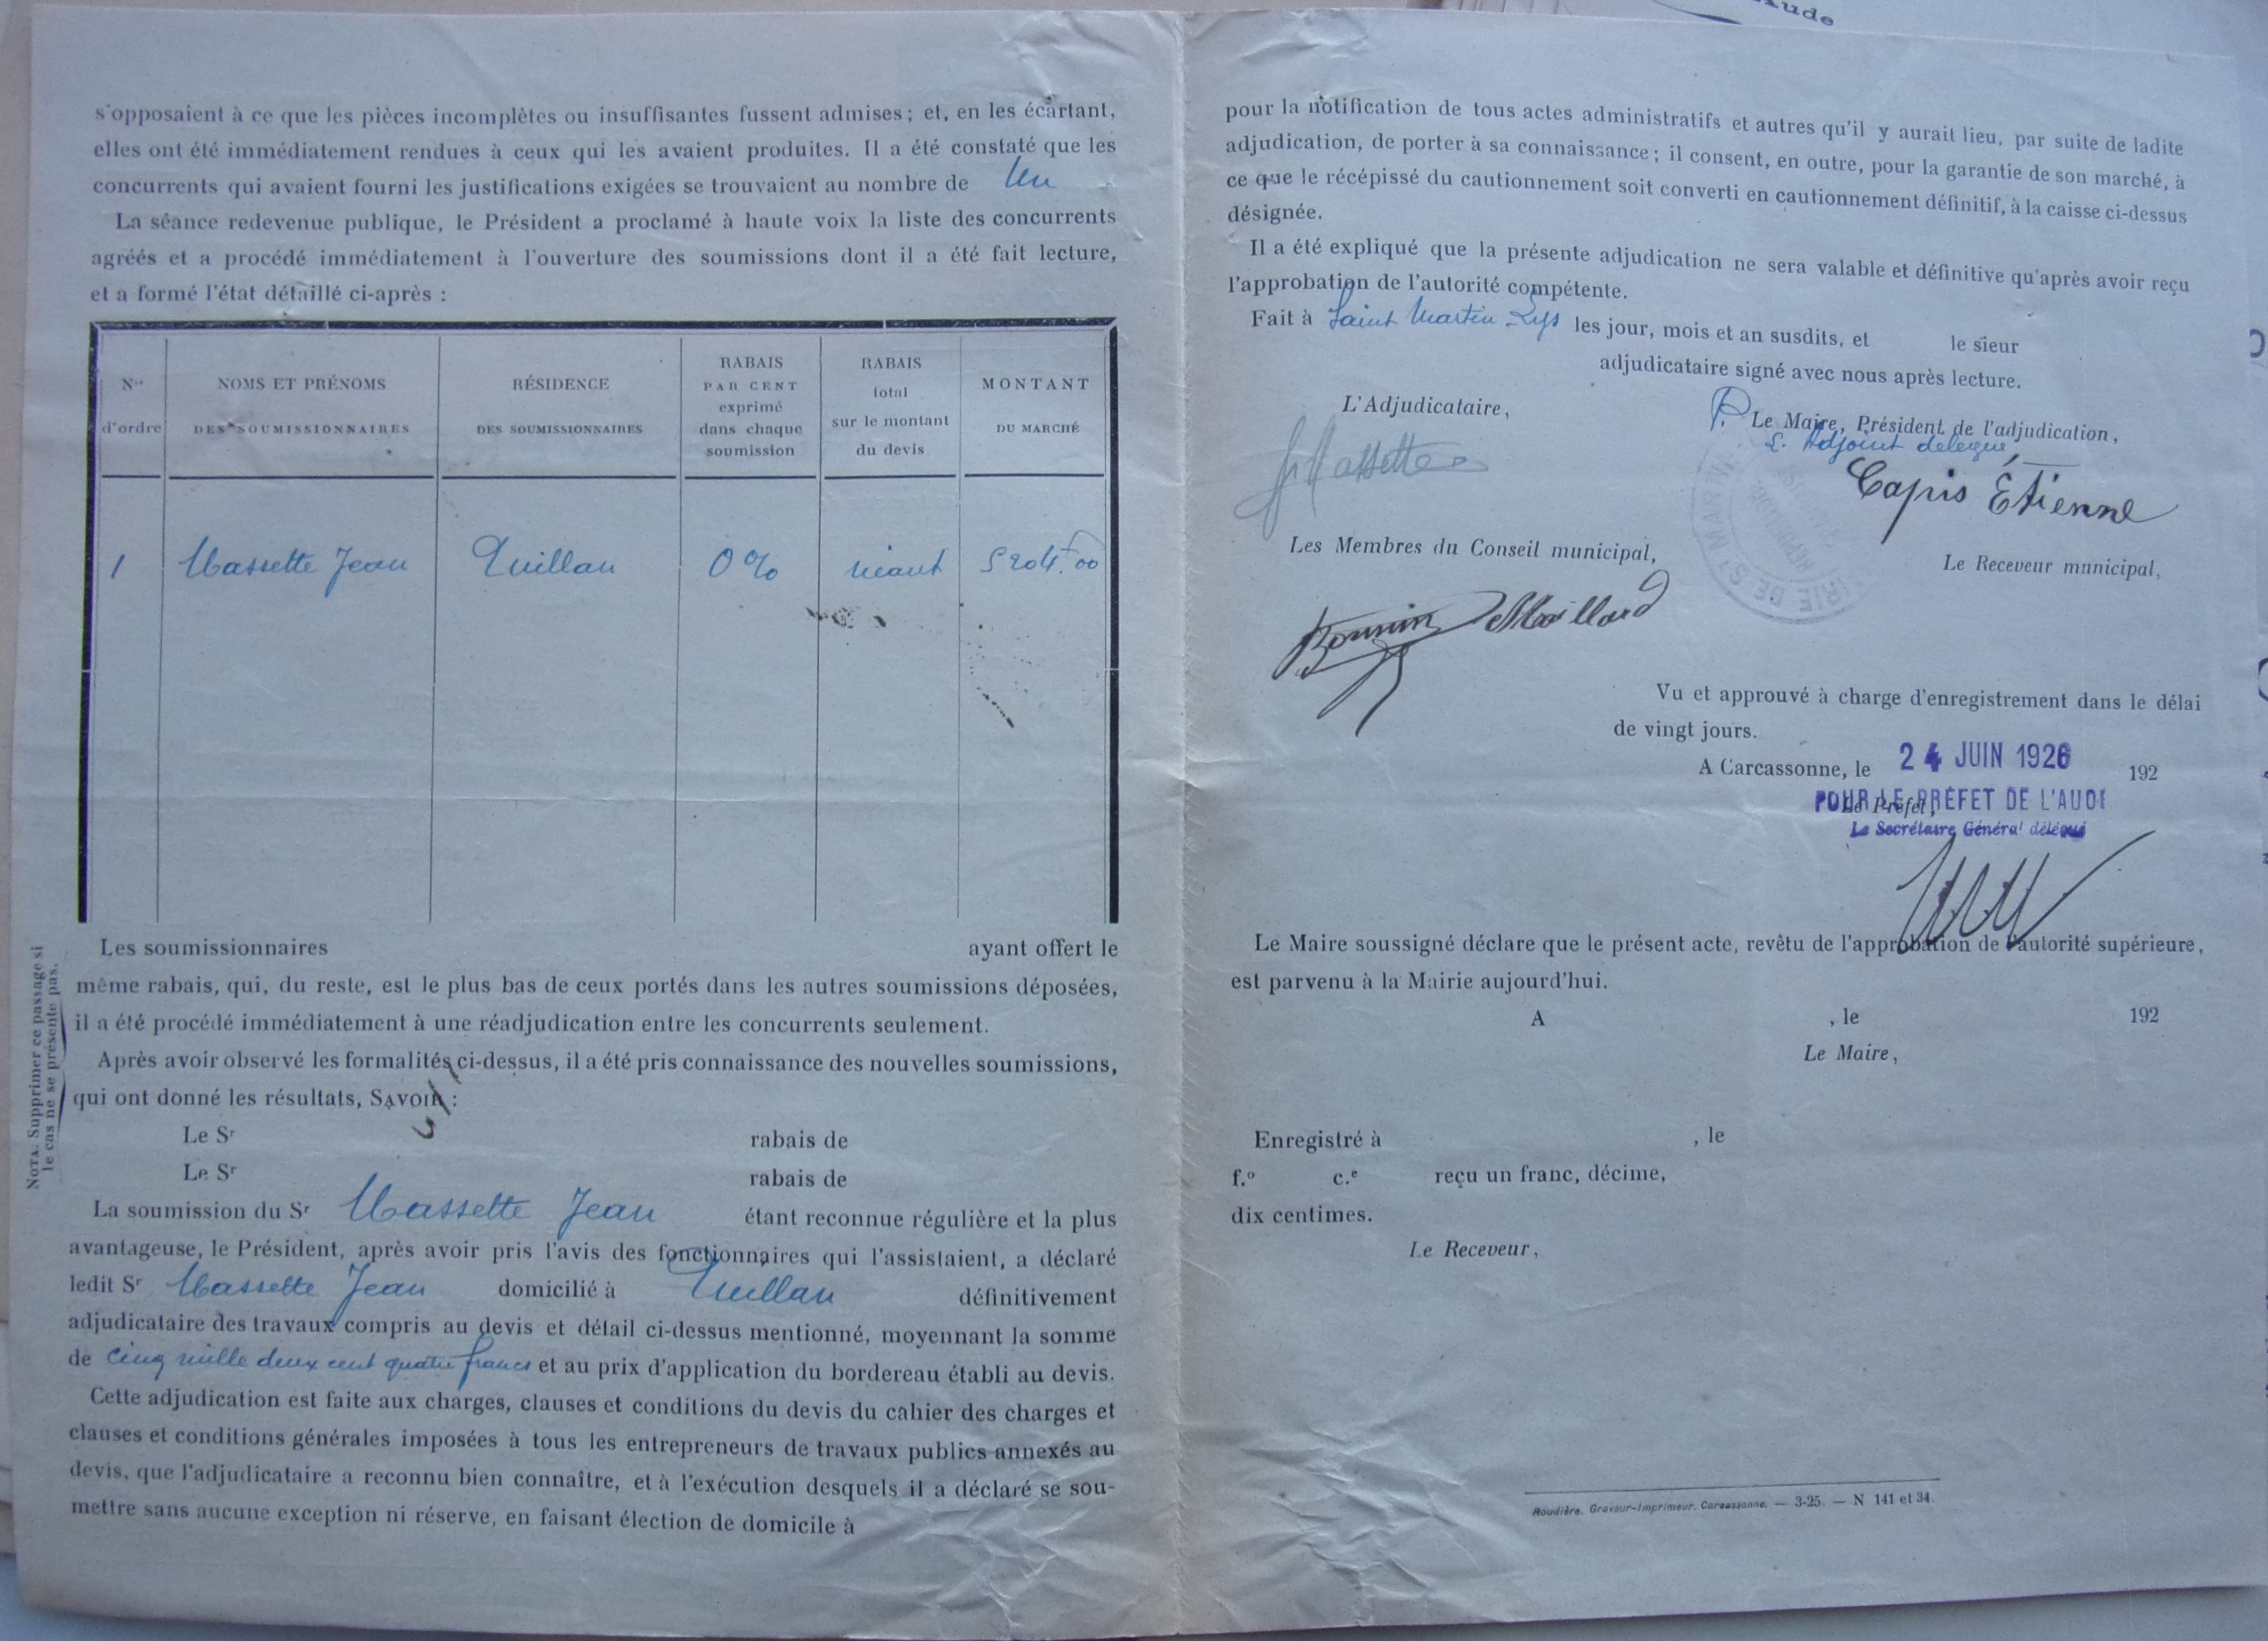 s'opposaient à ce que les pièces incomplètes ou insuffisantes fussent admises; et, en les écartant,
elles ont été immédiatement rendues à ceux qui les avaient produites. Il a été constaté que les
concurrents qui avaient fourni les justifications exigées se trouvaient au nombre de Un
La séance redevenue publique, le Président a proclamé à haute voix la liste des concurrents
agréés et a procédé immédiatement à l'ouverture des soumissions dont il a été fait lecture,
et a formé l'état détaillé ci-après :
Nos d'ordre
NOMS ET PRÉNOMS DES SOUMISSIONNAIRES
RÉSIDENCE DES SOUMISSIONNAIRES
RABAIS PAR CENT exprimé dans chaque soumission
RABAIS total sur le montant du devis
MONTANT DU MARCHÉ
1 Massette Jean Quillan 0% néant 5204f.00
NOTA. Supprimer ce passage si
le cas ne se présente pas.
Les soumissionnaires ayant offert le
même rabais, qui, du reste, est le plus bas de ceux portés dans les autres soumissions déposées,
il a été procédé immédiatement à une réadjudication entre les concurrents seulement.
Après avoir observé les formalités ci-dessus, il a été pris connaissance des nouvelles soumissions,
qui ont donné les résultats, SAVOIR :
Le Sr rabais de
Le Sr rabais de
La soumission du Sr Massette Jean étant reconnue régulière et la plus
avantageuse, le Président, après avoir pris l'avis des fonctionnaires qui l'assistaient, a déclaré
ledit Sr Massette Jean domicilié à Quillan définitivement
adjudicataire des travaux compris au devis et détail ci-dessus mentionné, moyennant la somme
de Cinq mille deux cent quatre francs et au prix d'application du bordereau établi au devis.
Cette adjudication est faite aux charges, clauses et conditions du devis du cahier des charges et
clauses et conditions générales imposées à tous les entrepreneurs de travaux publics annexés au
devis, que l'adjudicataire a reconnu bien connaître, et à l'exécution desquels il a déclaré se sou-
mettre sans aucune exception ni réserve, en faisant élection de domicile à
ude
pour la notification de tous actes administratifs et autres qu'il y aurait lieu, par suite de ladite
adjudication, de porter à sa connaissance; il consent, en outre, pour la garantie de son marché, à
ce que le récépissé du cautionnement soit converti en cautionnement définitif, à la caisse ci-dessus
désignée.
Il a été expliqué que la présente adjudication ne sera valable et définitive qu'après avoir reçu
l'approbation de l'autorité compétente.
Fait à Saint Martin Lys les jour, mois et an susdits, et le sieur
adjudicataire signé avec nous après lecture.
L'Adjudicataire,
P. Le Maire, Président de l'adjudication,
L. Adjoint délégué,
Massette
Capis Étienne
Les Membres du Conseil municipal,
Le Receveur municipal,
Maillard
Vu et approuvé à charge d'enregistrement dans le délai
de vingt jours.
A Carcassonne, le 24 JUIN 1926 192
Le Préfet,
POUR LE PRÉFET DE L'AUDE
Le Secrétaire Général délégué
Le Maire soussigné déclare que le présent acte, revêtu de l'approbation de l'autorité supérieure,
est parvenu à la Mairie aujourd'hui.
A , le 192
Le Maire,
Enregistré à , le
f.o c.e reçu un franc, décime,
dix centimes.
Le Receveur,
Roudière. Graveur-Imprimeur. Carcassonne. — 3-25. — N 141 et 34.